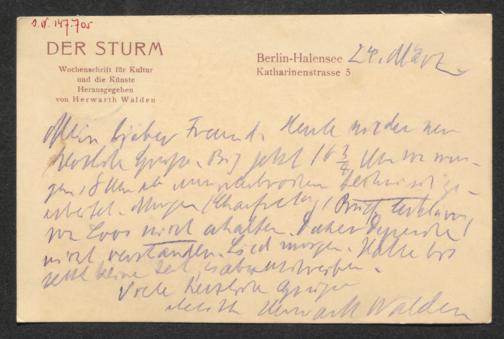 I.N. 147.705
DER STURM
Wochenschrift für Kultur
und die Künste
Herausgegeben
von Herwarth Walden
Berlin-Halensee 24. März
Katharinenstrasse 5
Mein lieber Freund. Heute wieder nur
herzliche Grüsse. Bis jetzt 16 3/4 Uhr
gearbeitet. Morgen (Charfreitag)
von Loos nicht erhalten. Daher Depesche
nicht verstanden. Lied morgen. Hatte bis
jetzt keine Zeit, es abzuschreiben.
Viele herzliche Grüsse
Herwarth Walden